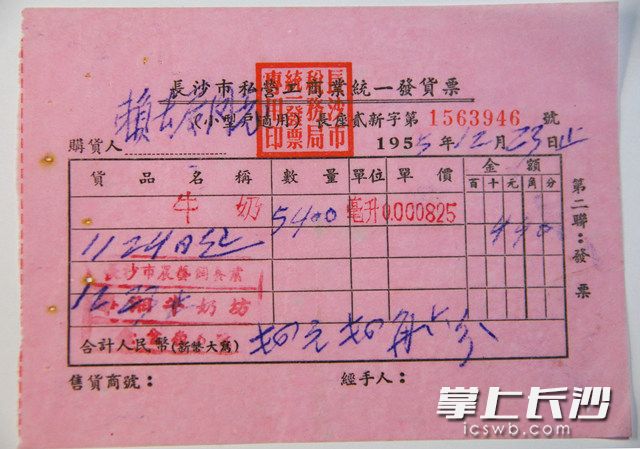 長沙市私營工商業統一發貨票
長沙市稅務局統一發票專用印
(小型戶適用) 長座貳新字第 1563946 號
購貨人 賴
1955年12月23日止
貨品名稱 數量 單位 單價 金額
百 十 元 角 分
牛奶 5400 毫升 0.000825 4 4 6
11 24日起
長沙市
牛奶坊
合計人民幣(新幣大寫) 肆元肆角 分
售貨商號： 經手人：
第二聯：發票
掌上长沙
icswb.com